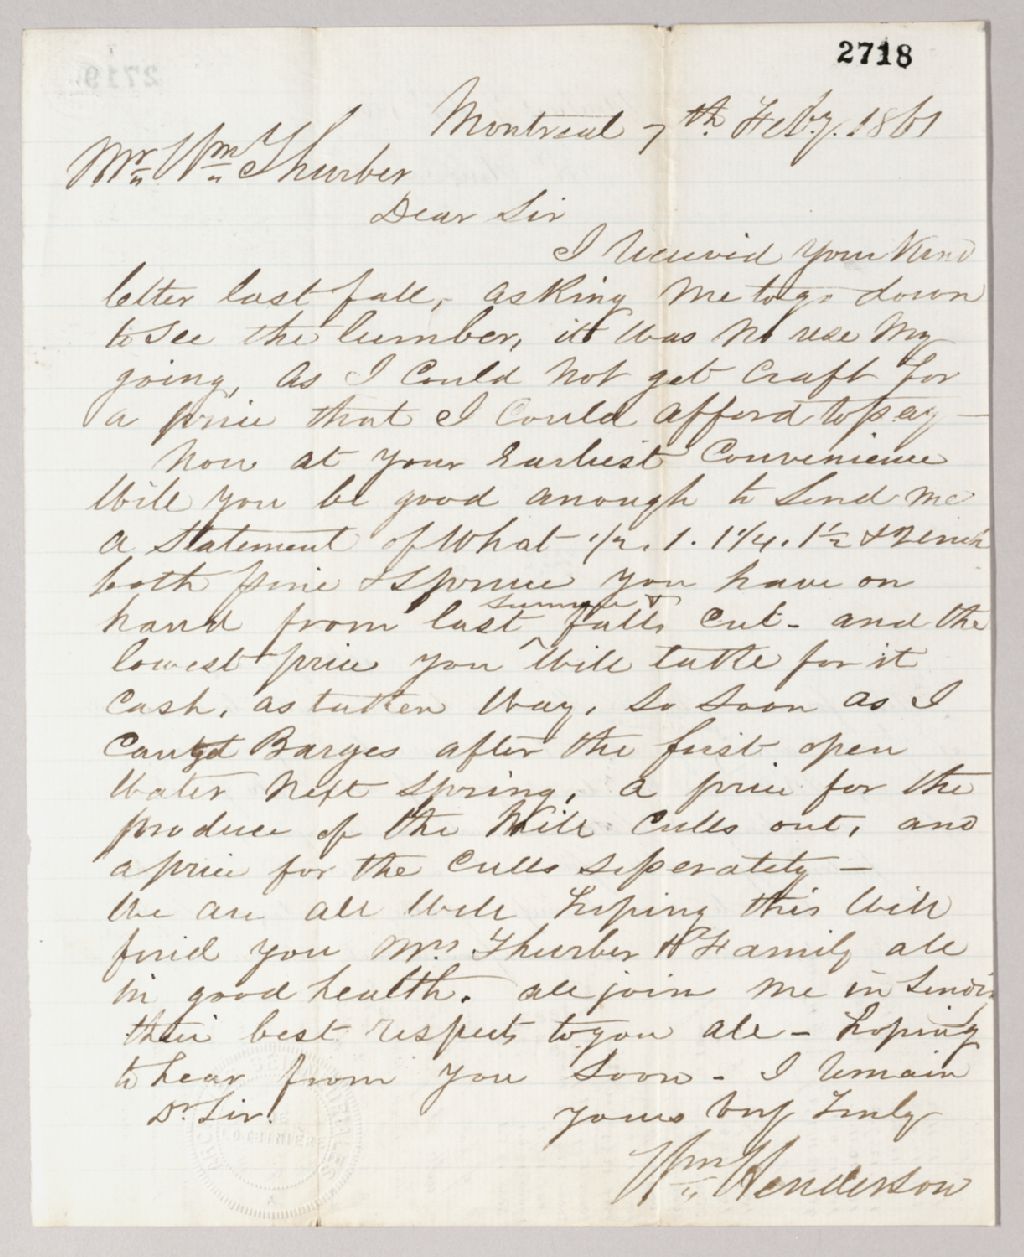 2718
Montreal 7th Feby. 1861
Mr. Wm Thurber
Dear Sir
I received your Kind
letter last fall, asking me to go down
to see the lumber, it was no use my
going, as I could not get craft for
a price that I could afford to pay —
Now at your Earliest Convenience
Will you be good anough to send me
a Statement of What 1/2. 1. 1 1/4. 1 1/2 & 2 inch
both pine & Spruce you have on
hand from last summer & falls Cut - and the
lowest price you Will take for it
Cash, as taken Way, so soon as I
Can get Barges after the first open
Water Next Spring, a price for the
produce of the Mill Culls out, and
a price for the Culls seperately —
We are all Well hoping this Will
find you Mrs Thurber & Family all
in good health. all join me in Sending
their best respects to you all - hoping
to hear from you Soon - I remain
Dr Sir
yours very Truly
Wm Henderson